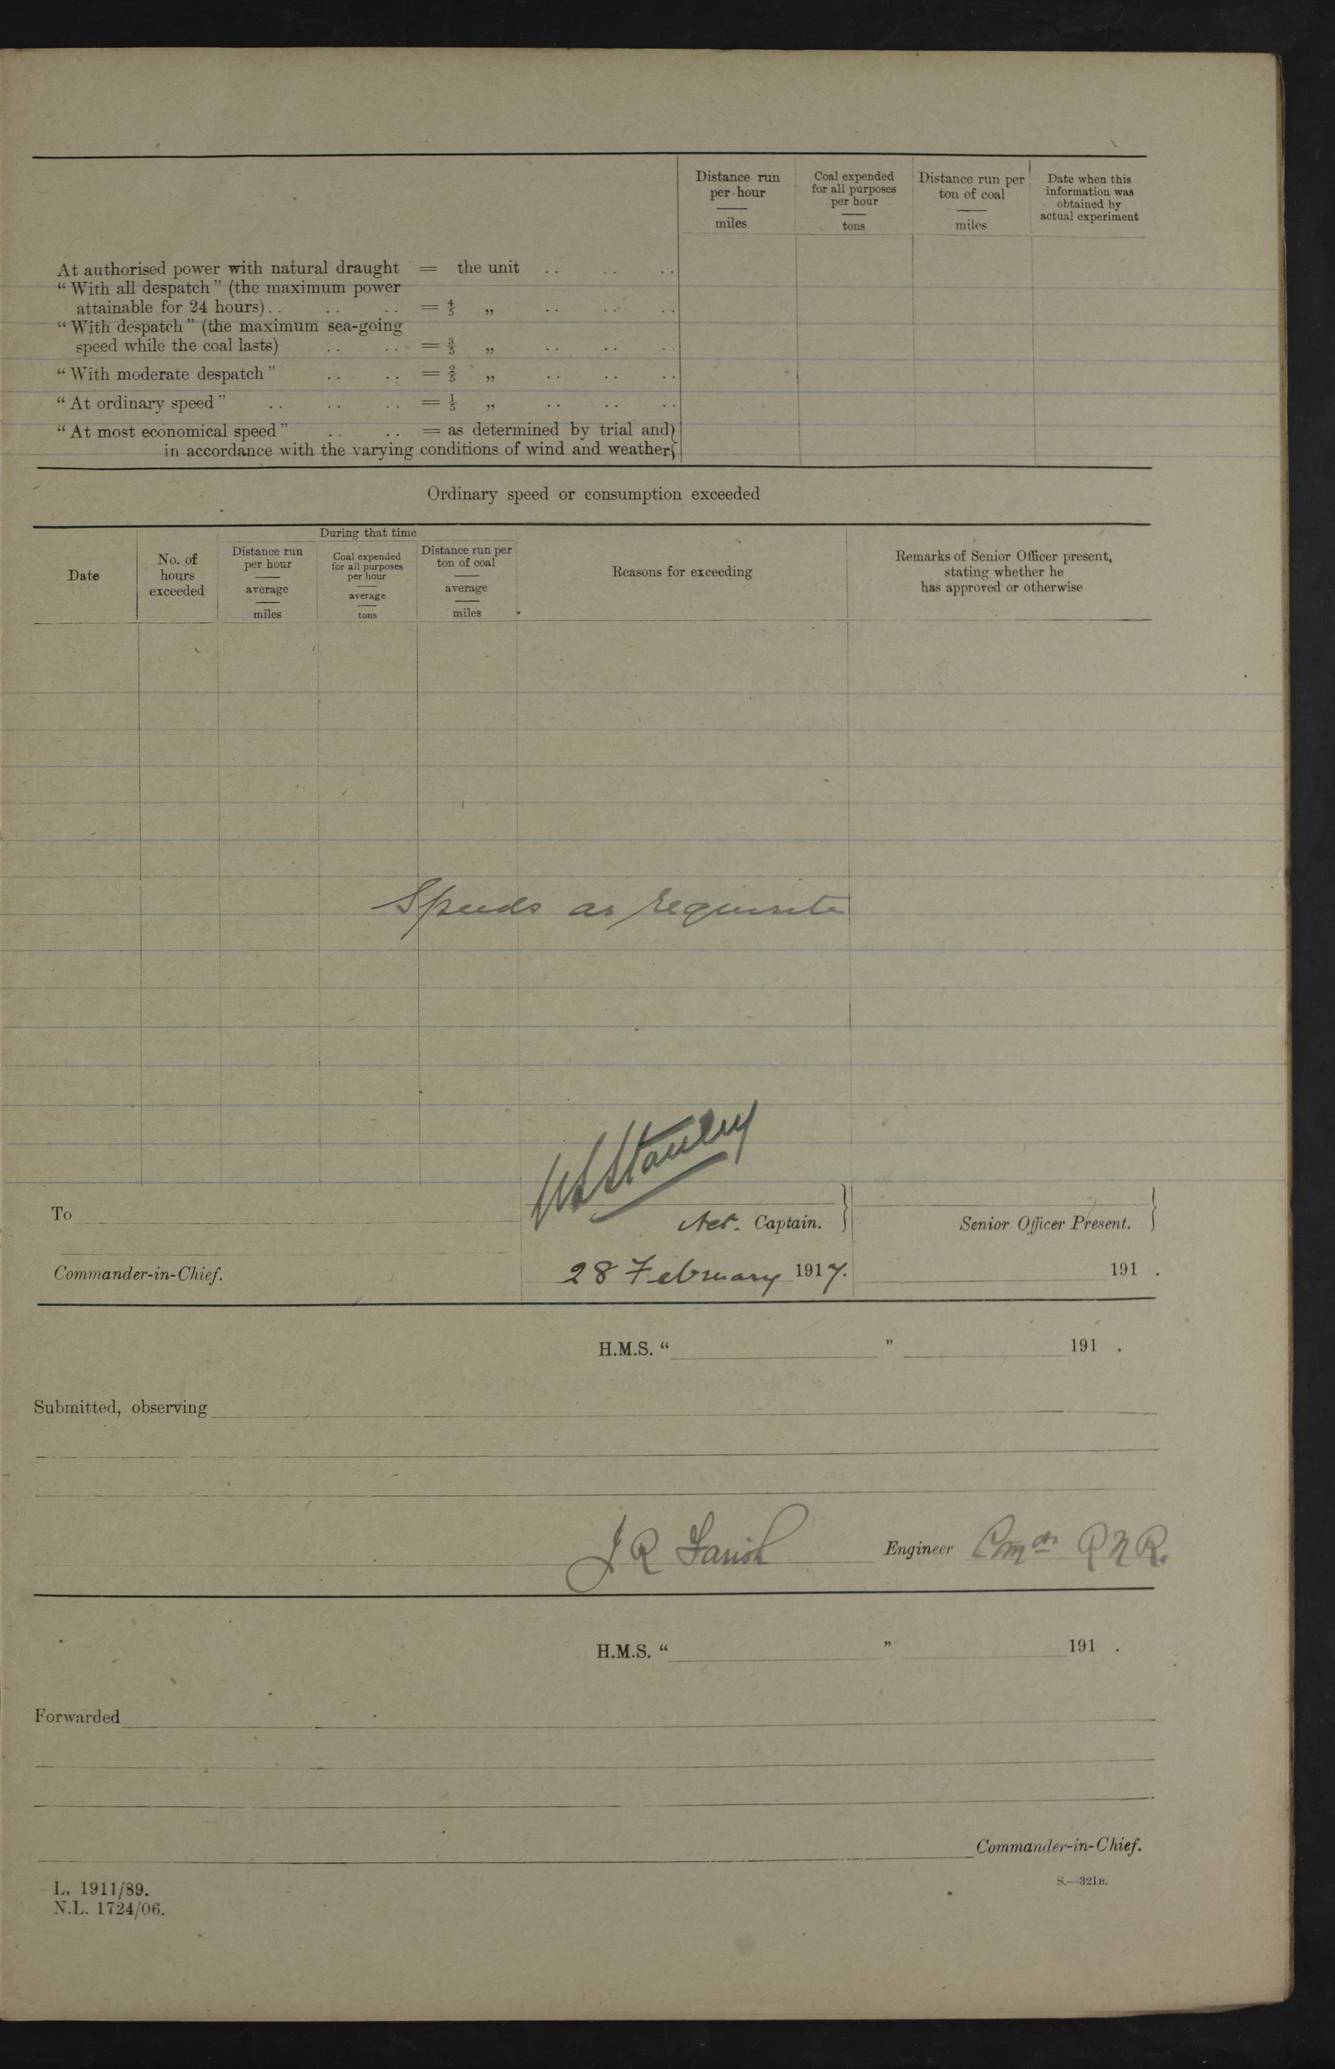 Distance run per hour miles
Coal expended for all purposes per hour tons
Distance run per ton of coal miles
Date when this information was obtained by actual experiment
At authorised power with natural draught = the unit .. .. ..
“With all despatch” (the maximum power
attainable for 24 hours) .. .. .. = 4/5 „ .. .. ..
“With despatch” (the maximum sea-going
speed while the coal lasts) .. .. = 3/5 „ .. .. ..
“With moderate despatch” .. .. = 2/5 „ .. .. ..
“At ordinary speed” .. .. .. = 1/5 „ .. .. ..
“At most economical speed” .. .. = as determined by trial and}
in accordance with the varying conditions of wind and weather}
Ordinary speed or consumption exceeded
Date
No. of hours exceeded
During that time
Distance run per hour average miles
Coal expended for all purposes per hour average tons
Distance run per ton of coal average miles
Reasons for exceeding
Remarks of Senior Officer present, stating whether he has approved or otherwise
Speeds as requisite
Stanley
To
Act. Captain. }
Senior Officer Present. }
Commander-in-Chief.
28 February 1917.
191 .
H.M.S. “ ” 191 .
Submitted, observing
J R Farish Engineer Cmdr R N R.
H.M.S. “ ” 191 .
Forwarded
Commander-in-Chief.
L. 1911/89.
N.L. 1724/06.
S.—321B.